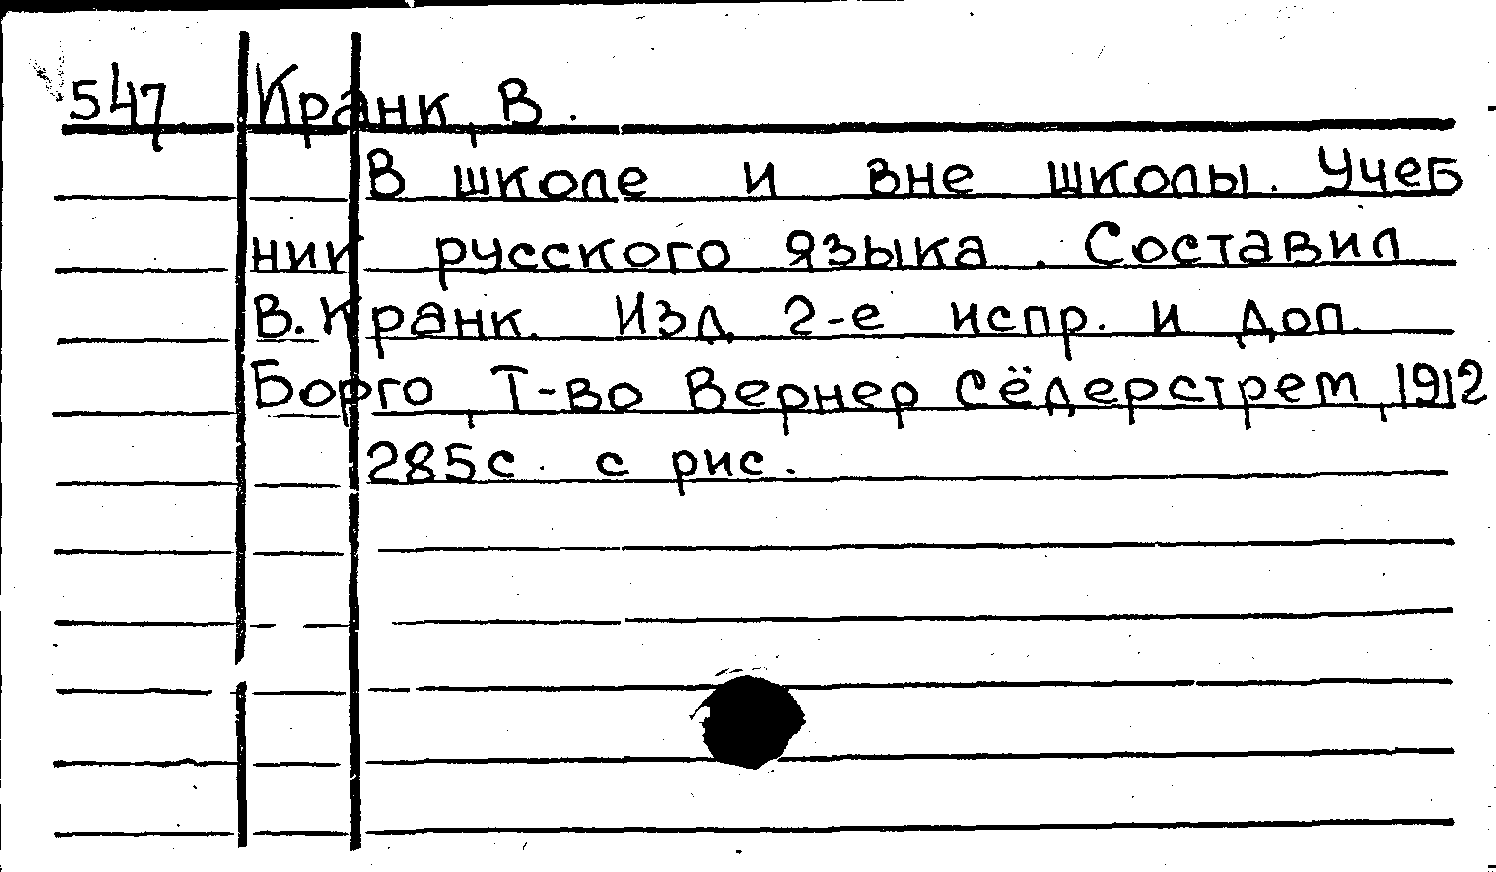 547 Кранк, В.
В школе и вне школы. Учеб
ник русского языка. Составил
В. Кранк. Изд. 2-е испр. и доп.
Борго, Т-во Вернер Сёдерстрем, 1912
285с. с рис.